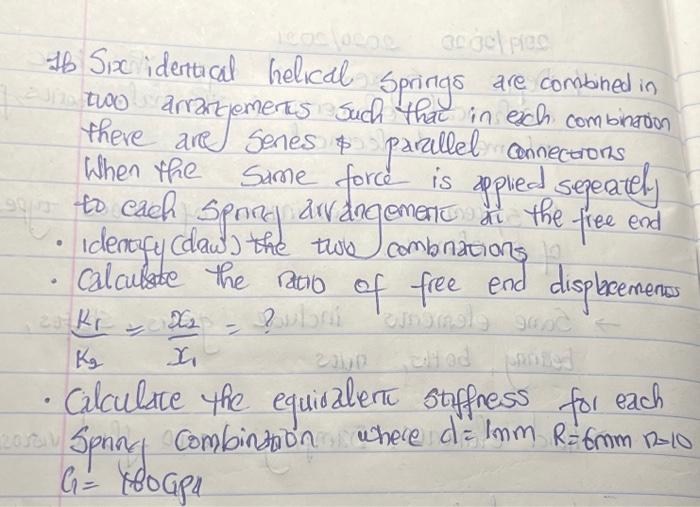 1b Six identical helical springs are combined in
two arrangements such that in each combination
there are series & parallel connections
When the same force is applied seperately
to each spring arrangement at the free end
· identify (daw) the two combinations
· Calculate the ratio of free end displacements
K1/K2 = x2/x1 = ?
· Calculate the equivalent stiffness for each
Spring Combination where d=1mm R=6mm n=10
G= 80GPa